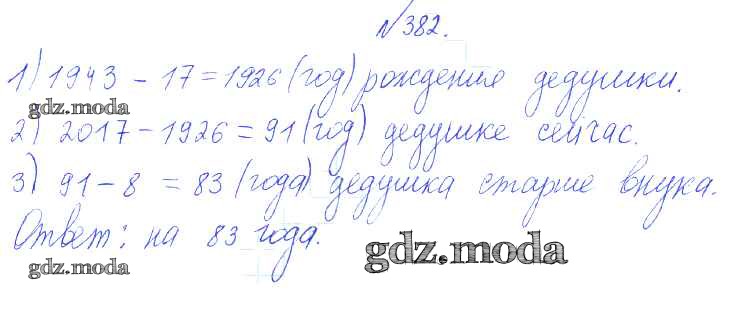 №382.
1) 1943 - 17 = 1926 (год) рождения дедушки.
gdz.moda
2) 2017 - 1926 = 91 (год) дедушке сейчас.
3) 91 - 8 = 83 (года) дедушка старше внука.
Ответ: на 83 года.
gdz.moda
gdz.moda